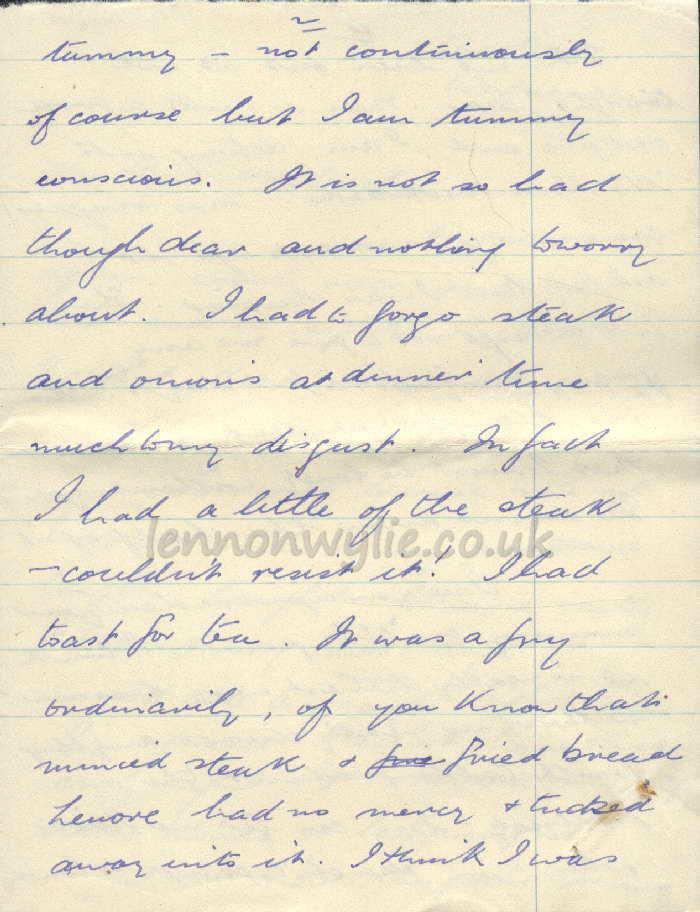 2
tummy - not continuously
of course but I am tummy
conscious. It is not so bad
though dear and nothing to worry
about. I had to forgo steak
and onions at dinner time
much to my disgust. In fact
I had a little of the steak
lennonwylie.co.uk
- couldn't resist it! I had
toast for tea. It was a fry
ordinarily, of you know that's
minced steak + fried bread
Lenore had no mercy + tucked
away into it. I think I was